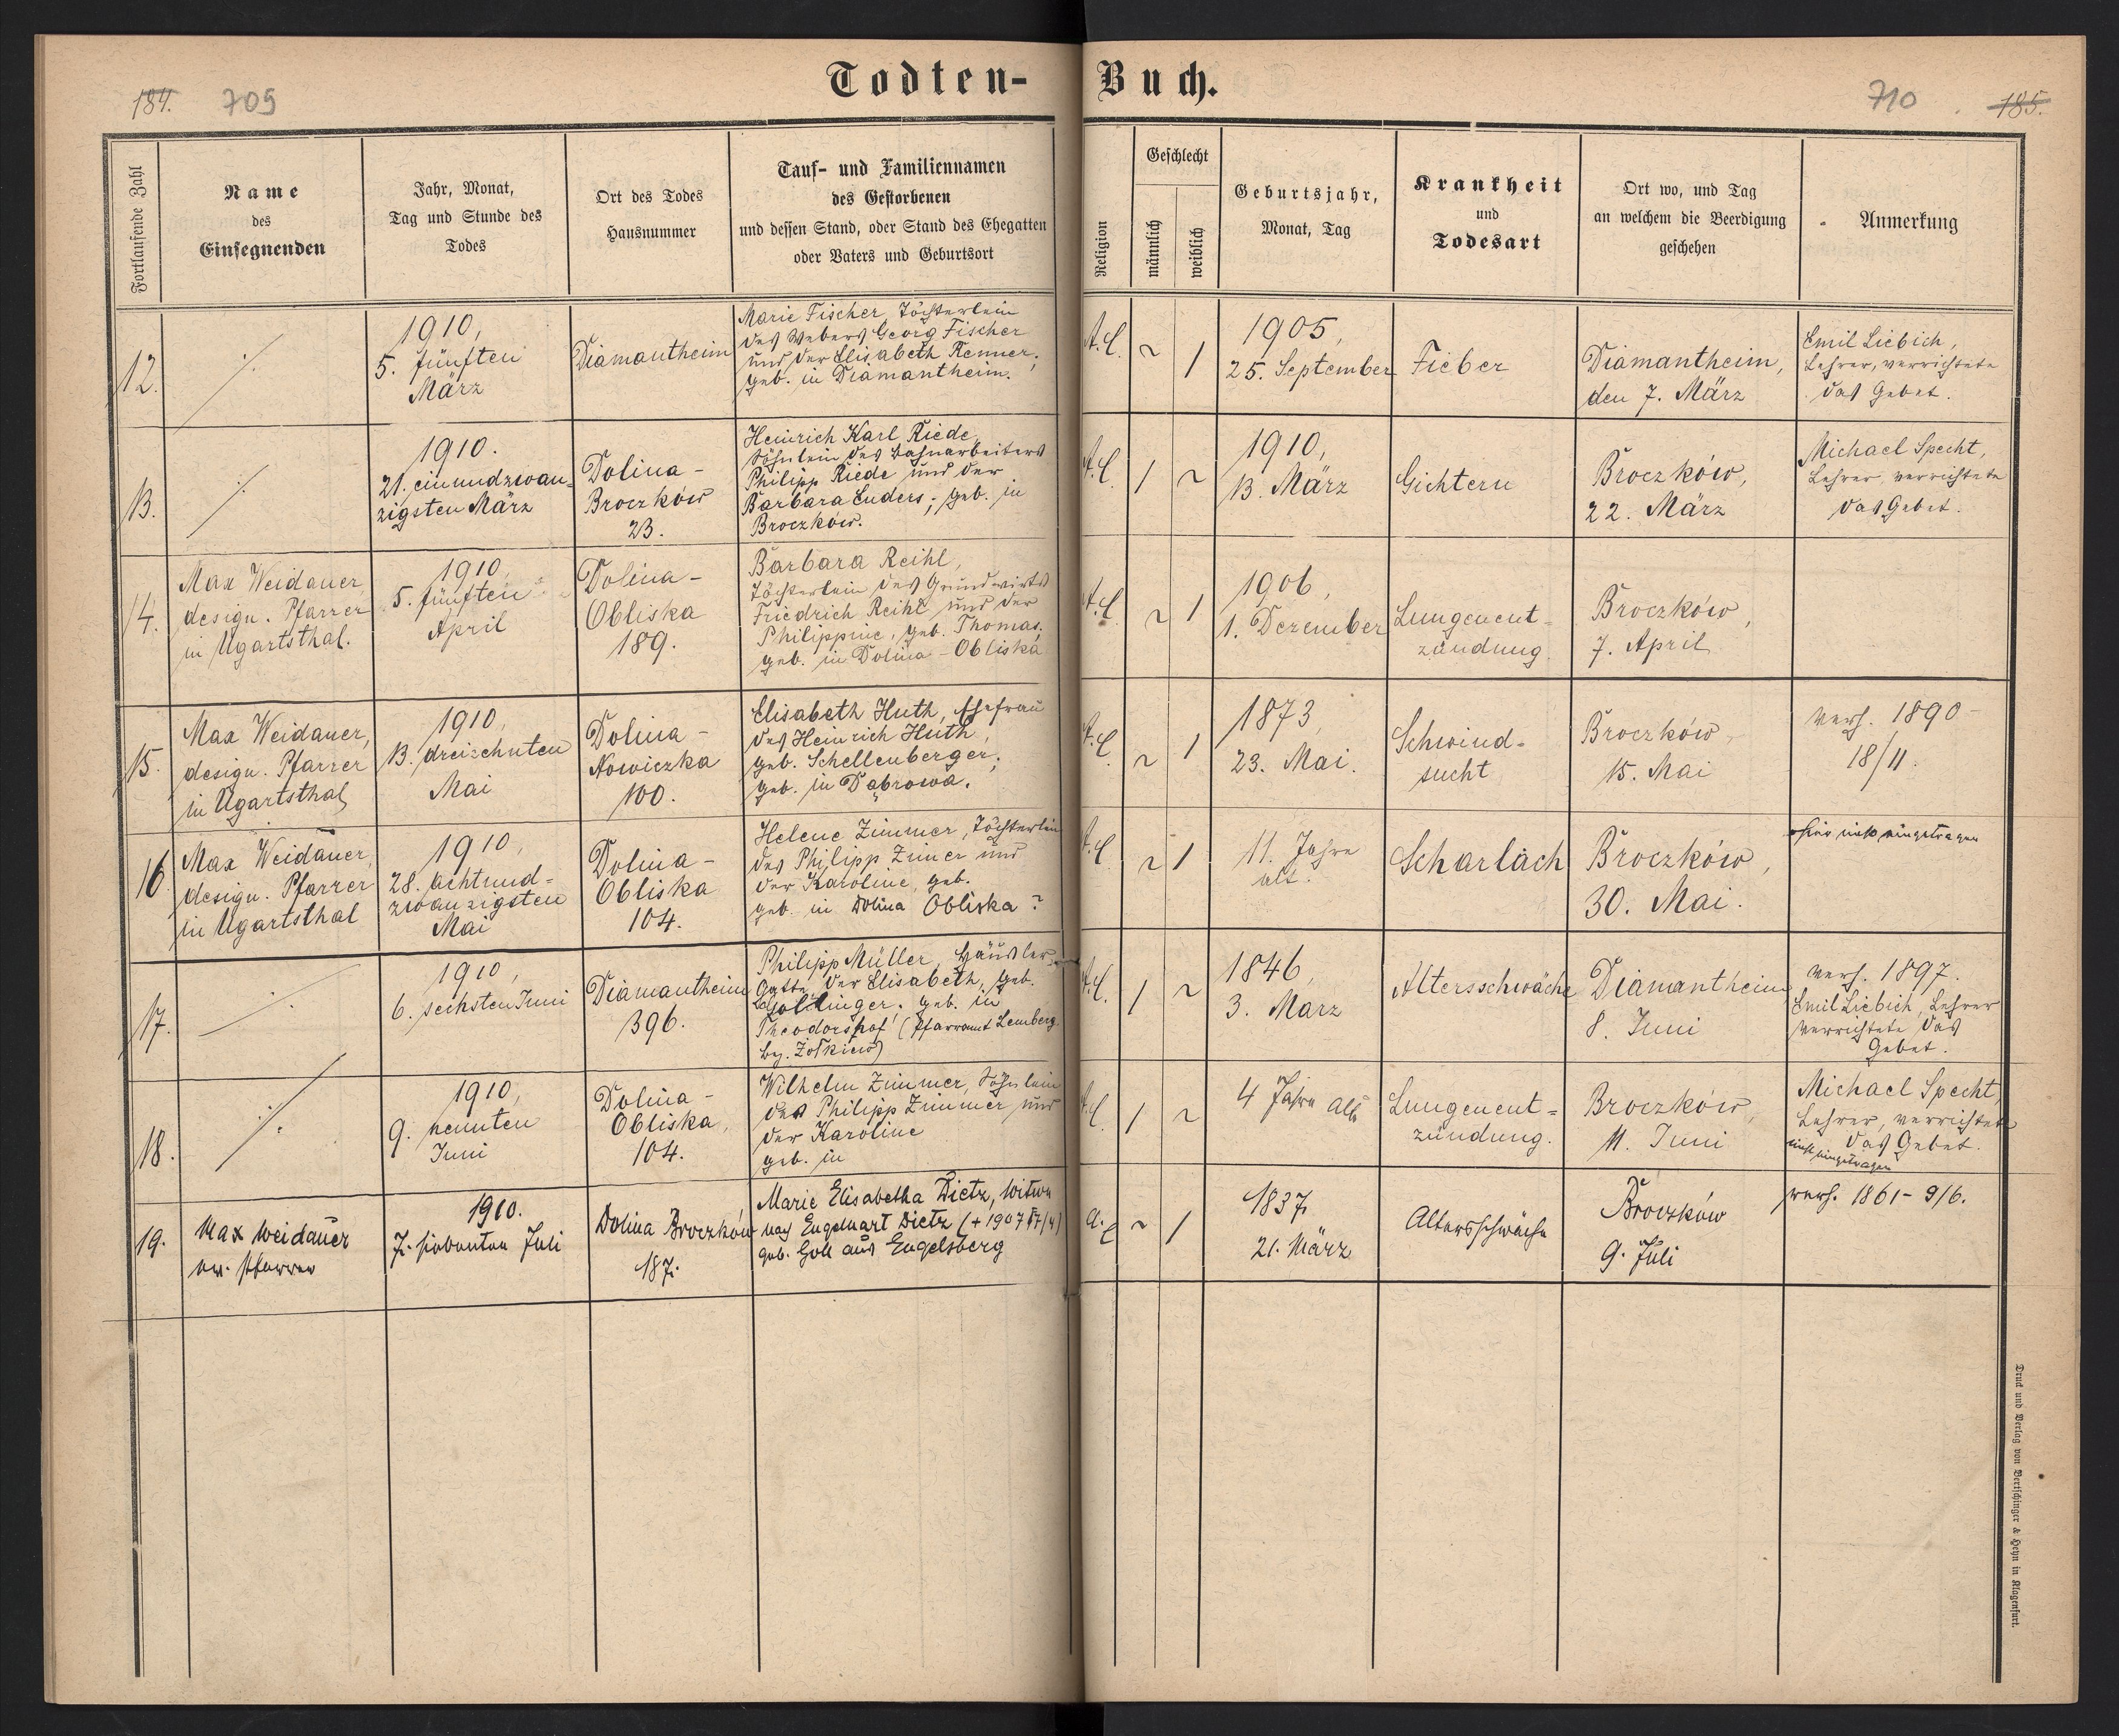 Todten-Buch.
184. 709
710 185.
Fortlaufende Zahl
Name
des
Einsegnenden
Jahr, Monat,
Tag und Stunde des
Todes
Ort des Todes
Hausnummer
Tauf- und Familiennamen
des Gestorbenen
und dessen Stand, oder Stand des Ehegatten
oder Vaters und Geburtsort
Religion
Geschlecht
männlich
weiblich
Geburtsjahr,
Monat, Tag
Krankheit
und
Todesart
Ort wo, und Tag
an welchem die Beerdigung
geschehen
Anmerkung
12.
⁒
1910,
5. fünften
März
Diamantheim
Marie Fischer, Töchterlein
des Webers Georg Fischer
und der Elisabeth Renner;
geb. in Diamantheim.
A.C.
~
1
1905,
25. September
Fieber
Diamantheim,
den 7. März
Emil Liebich,
Lehrer, verrichtete
das Gebet.
13.
⁒
1910.
21. einundzwan-
zigsten März
Dolina-
Broczków
23.
Heinrich Karl Riede,
Söhnlein des Bahnarbeiters
Philipp Riede und der
Barbara Enders; geb. in
Broczków.
A.C.
1
~
1910,
13. März
Gichtern
Broczków,
22. März
Michael Specht,
Lehrer, verrichtete
das Gebet.
14.
Max Weidauer
design. Pfarrer
in Ugartsthal.
1910,
5. fünften
April
Dolina-
Obliska
189.
Barbara Reihl,
Töchterlein des Grundwirts
Friedrich Reihl und der
Philippine, geb. Thomas;
geb. in Dolina-Obliska
A.C.
~
1
1906,
1. Dezember
Lungenent-
zündung.
Broczków,
7. April
15.
Max Weidauer,
design. Pfarrer
in Ugartsthal
1910,
13. dreizehnten
Mai
Dolina-
Nowiczka
100.
Elisabeth Huth, Ehefrau
des Heinrich Huth,
geb. Schellenberger;
geb. in Dąbrowa.
A.C.
~
1
1873,
23. Mai.
Schwind-
sucht
Broczków,
15. Mai
verh. 1890-
18/11.
16.
Max Weidauer,
design. Pfarrer
in Ugartsthal
1910,
28. achtund-
zwanzigsten
Mai
Dolina-
Obliska
104.
Helene Zimmer, Töchterlein
des Philipp Zimer und
der Karoline, geb.
geb. in Dolina Obliska ?
A.C.
~
1
11. Jahre
alt.
Scharlach
Broczków,
30. Mai.
hier nicht eingetragen
17.
⁒
1910,
6. sechsten Juni
Diamantheim
396.
Philipp Müller, Häusler,
Gatte der Elisabeth, geb.
geb. in
Theodorshof (Pfarramt Lemberg
bz. Żołkiew)
A.C.
1
~
1846,
3. März
Altersschwäche
Diamantheim
8. Juni
verh. 1897.
Emil Liebich, Lehrer
verrichtete das
Gebet.
18.
⁒
1910,
9. neunten
Juni
Dolina-
Obliska,
104.
Wilhelm Zimmer, Söhnlein
des Philipp Zimmer und
der Karoline
geb. in
A.C.
1
~
4 Jahre alt
Lungenent-
zündung.
Broczków,
11. Juni
Michael Specht,
Lehrer, verrichtete
das Gebet.
nicht eingetragen
19.
Max Weidauer
ev. Pfarrer
1910.
7. siebenten Juli
Dolina Broczków
187.
Marie Elisabetha Dietz, Witwe
nach Engelhart Dietz (+ 1907 17/4)
geb. Goll aus Engelsberg
A.C.
~
1
1837.
21. März
Altersschwäche
Broczków
9. Juli
verh. 1861-9/6.
Druck und Verlag von Bertschinger & Heyn in Klagenfurt.